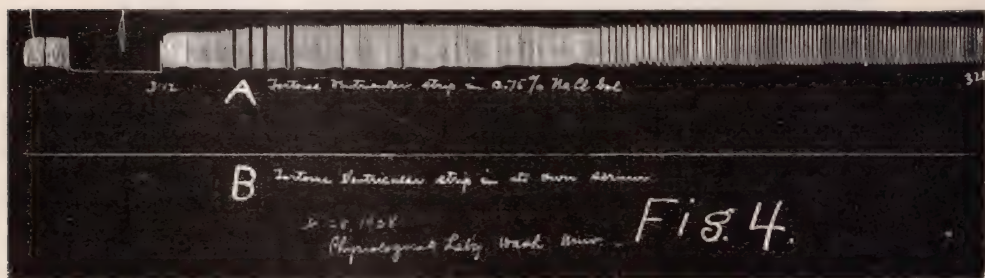 32
A Tortoise Ventricular strip in 0.75% NaCl Sol
B Tortoise Ventricular strip in its own serum
Physiological Laby. Wash. Univ.
Fig. 4.